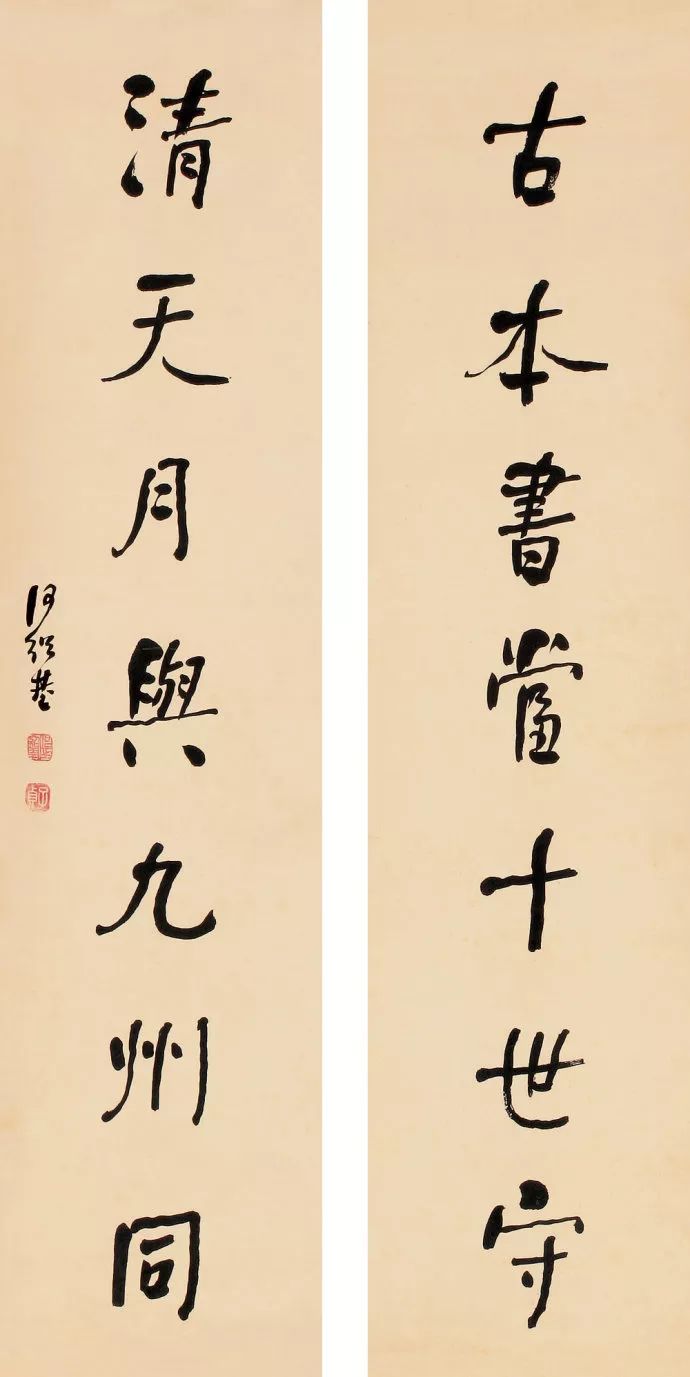 古本書當十世守
清天月與九州同
何紹基
子貞